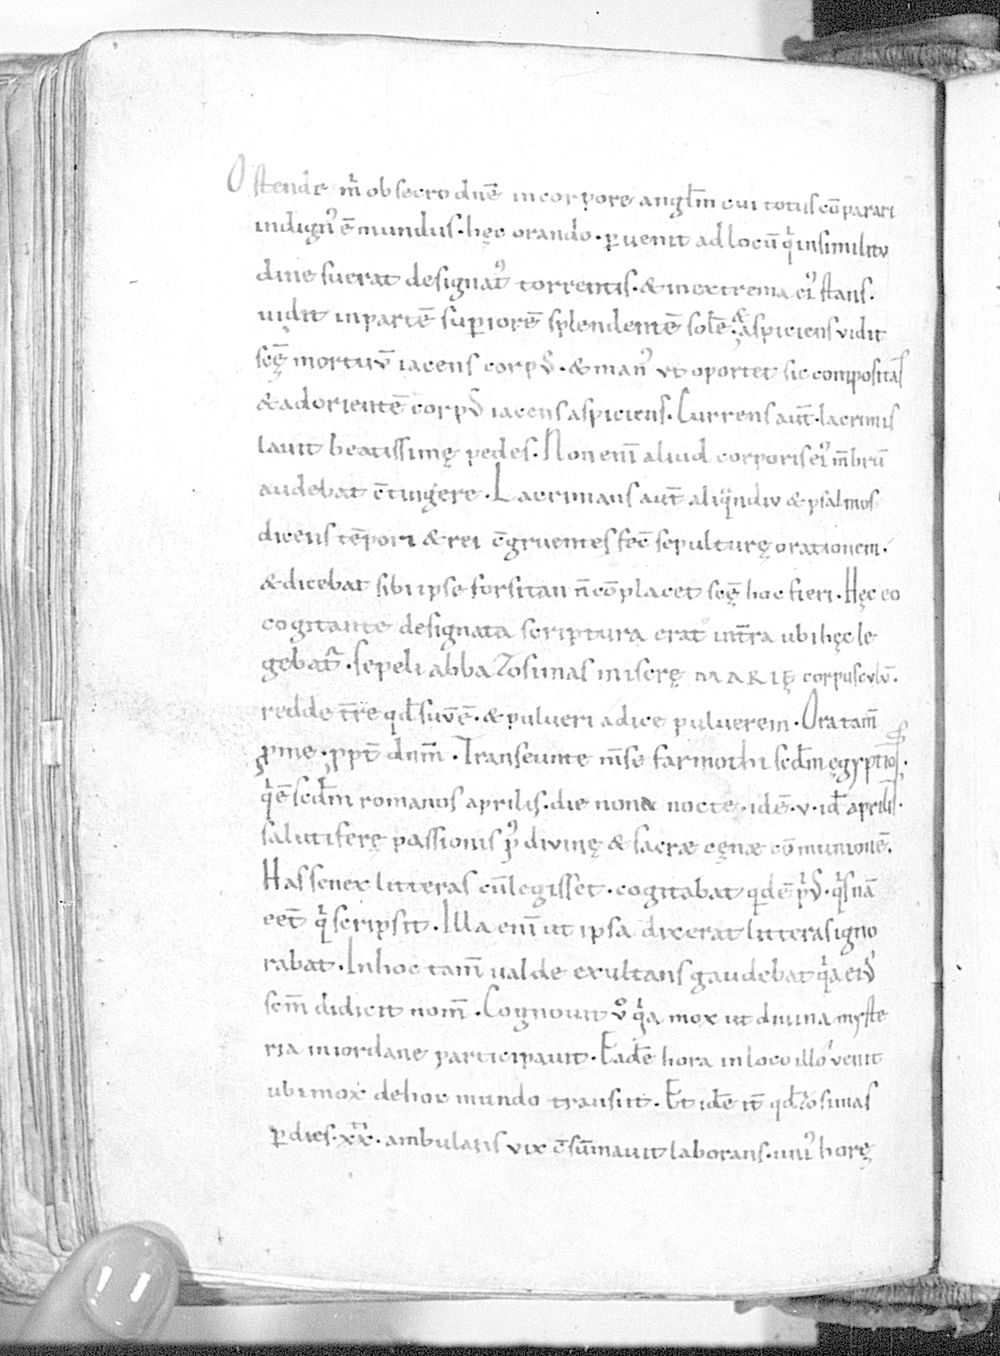 Ostende m̄ obsecro dn̄e in corpore angl̄m cui totus cōparari
indign᾿ ē mundus. hęc orando. ꝑuenit ad locū q᾿ in similitu
dine fuerat designat᾿ torrentis. & in extrema ei᾿ stans.
uidit in partē superiorē splendentē solē. & aspiciens vidit
scę̄ mortuū iacens corp᾿. & man᾿ vt oportet sic compositas
& ad orientē corp᾿ iacens aspiciens. Currens aut̄. lacrimis
lauit beatissimę pedes. Non enī aliud corporis ei᾿ m̄brū
audebat c̄tingere. Lacrimans aut̄ aliqͣndiu & psalmos
dicens tēpori & rei c̄gruentes fec̄ sepulturę orationem.
& dicebat sibi ipse forsitan n̄ cōplacet scę̄ hoc fieri. Hęc eo
cogitante designata scriptura erat int̄ra ubi hęc le
gebat᾿. sepeli abba Zosimas miserę MARIĘ corpusculū.
redde t̄re qd̄ suū ē. & pulueri adice puluerem. Ora tam̄
ꝓ me. ꝓpt̄ dnm̄. Transeunte m̄se farmothi scd̄m ęgyptios.
q᾿ ē scd̄m romanos aprilis. die nona nocte. id ē. v. id̄ aprilis.
salutiferę passionis p᾿ diuinę & sacræ cęnæ cōmunionē.
Has senex litteras cū legisset. cogitabat qidē p᾿᾿. q᾿s nā
eet̄ q᾿ scripsit. Illa enī ut ipsa dixerat litteras igno
rabat. In hoc tam̄ ualde exultans gaudebat qͣa ei᾿
sc̄m didicit nom̄. Cognouit v̊ qͣa mox ut diuina myste
ria in iordane participauit. Eadē hora in loco illo᾿ uenit
ubi mox de hoc mundo transiit. Et idē it̄ qd̄ zosimas
ꝑ dies. xx. ambulans vix c̄sūmauit laborans. uni᾿ horę